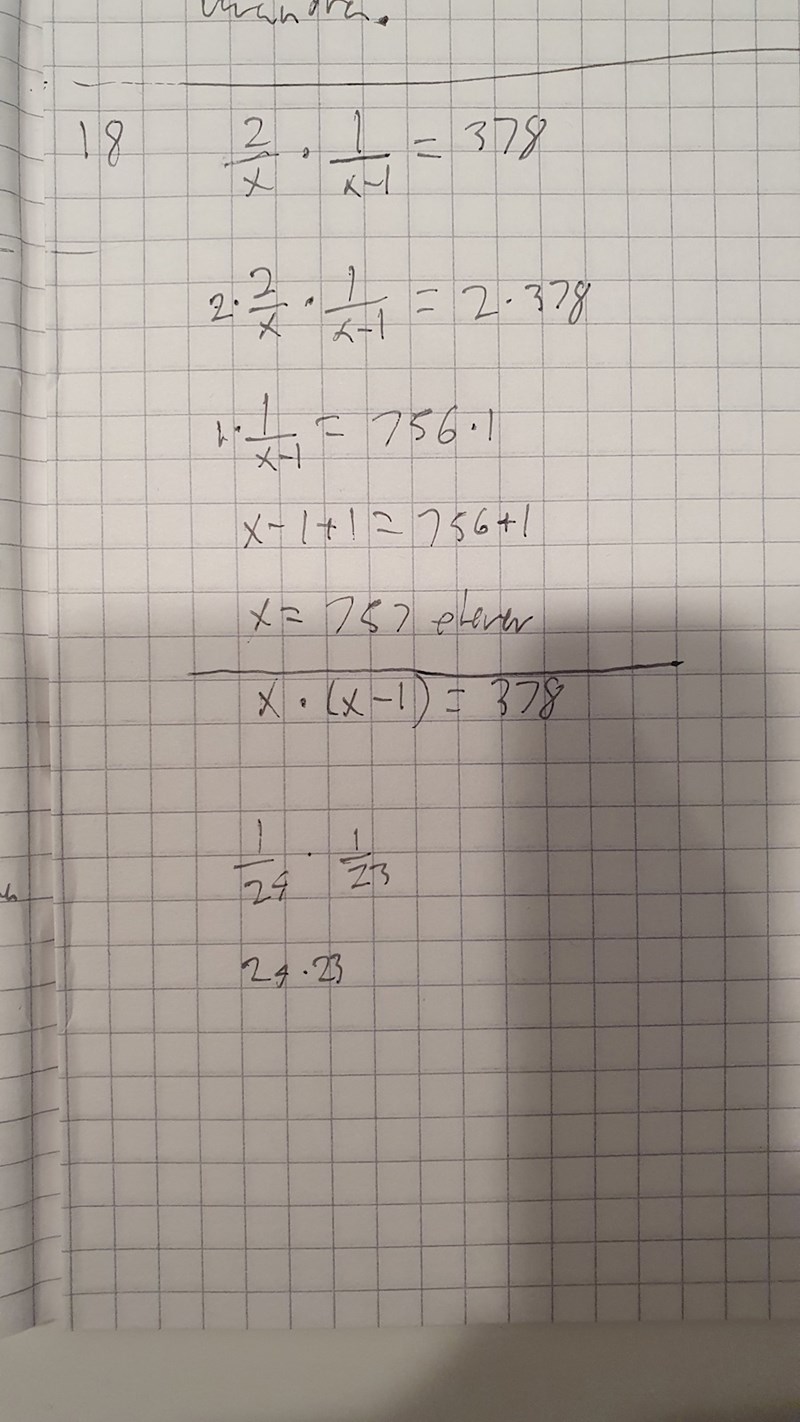 18 2/x · 1/(x-1) = 378
2 · 2/x · 1/(x-1) = 2 · 378
1/(x-1) = 756 · 1
x - 1 + 1 = 756 + 1
x = 757 elever
x · (x - 1) = 378
1/24 · 1/23
24 · 23